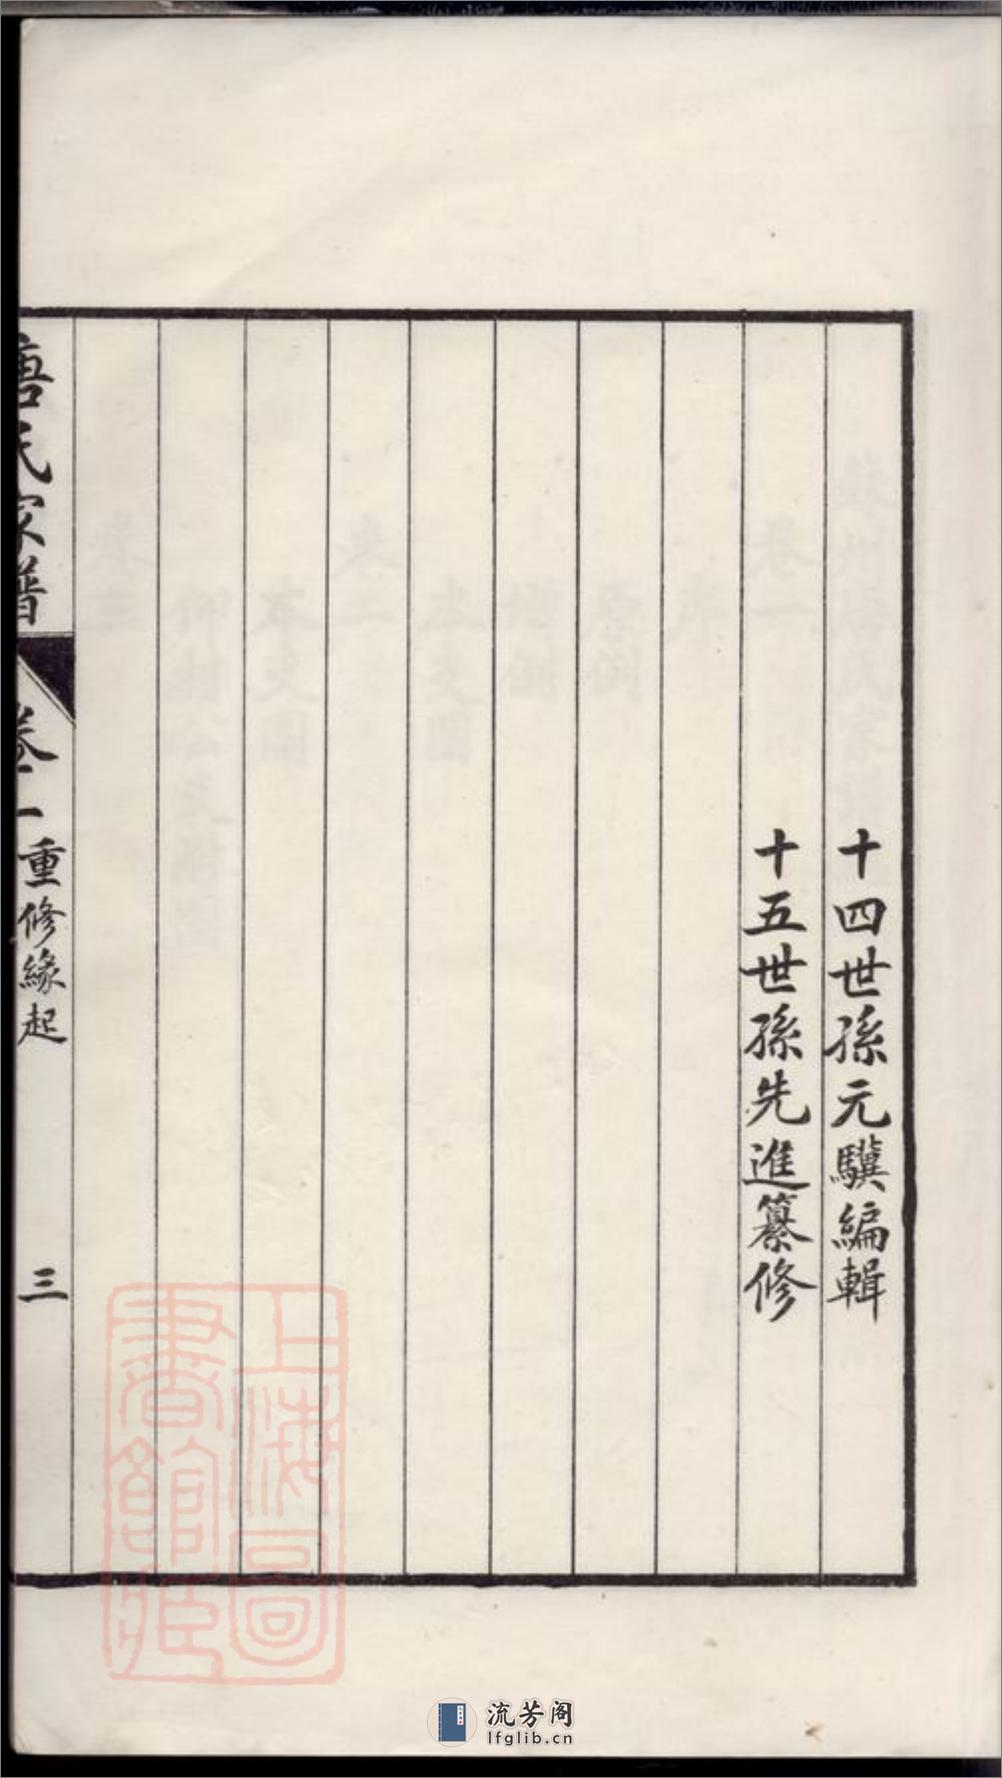 十四世孫元驥編輯
十五世孫先進纂修
唐氏家譜 卷一 重修緣起 三
上海圖書館藏
流芳阁
lfglib.cn